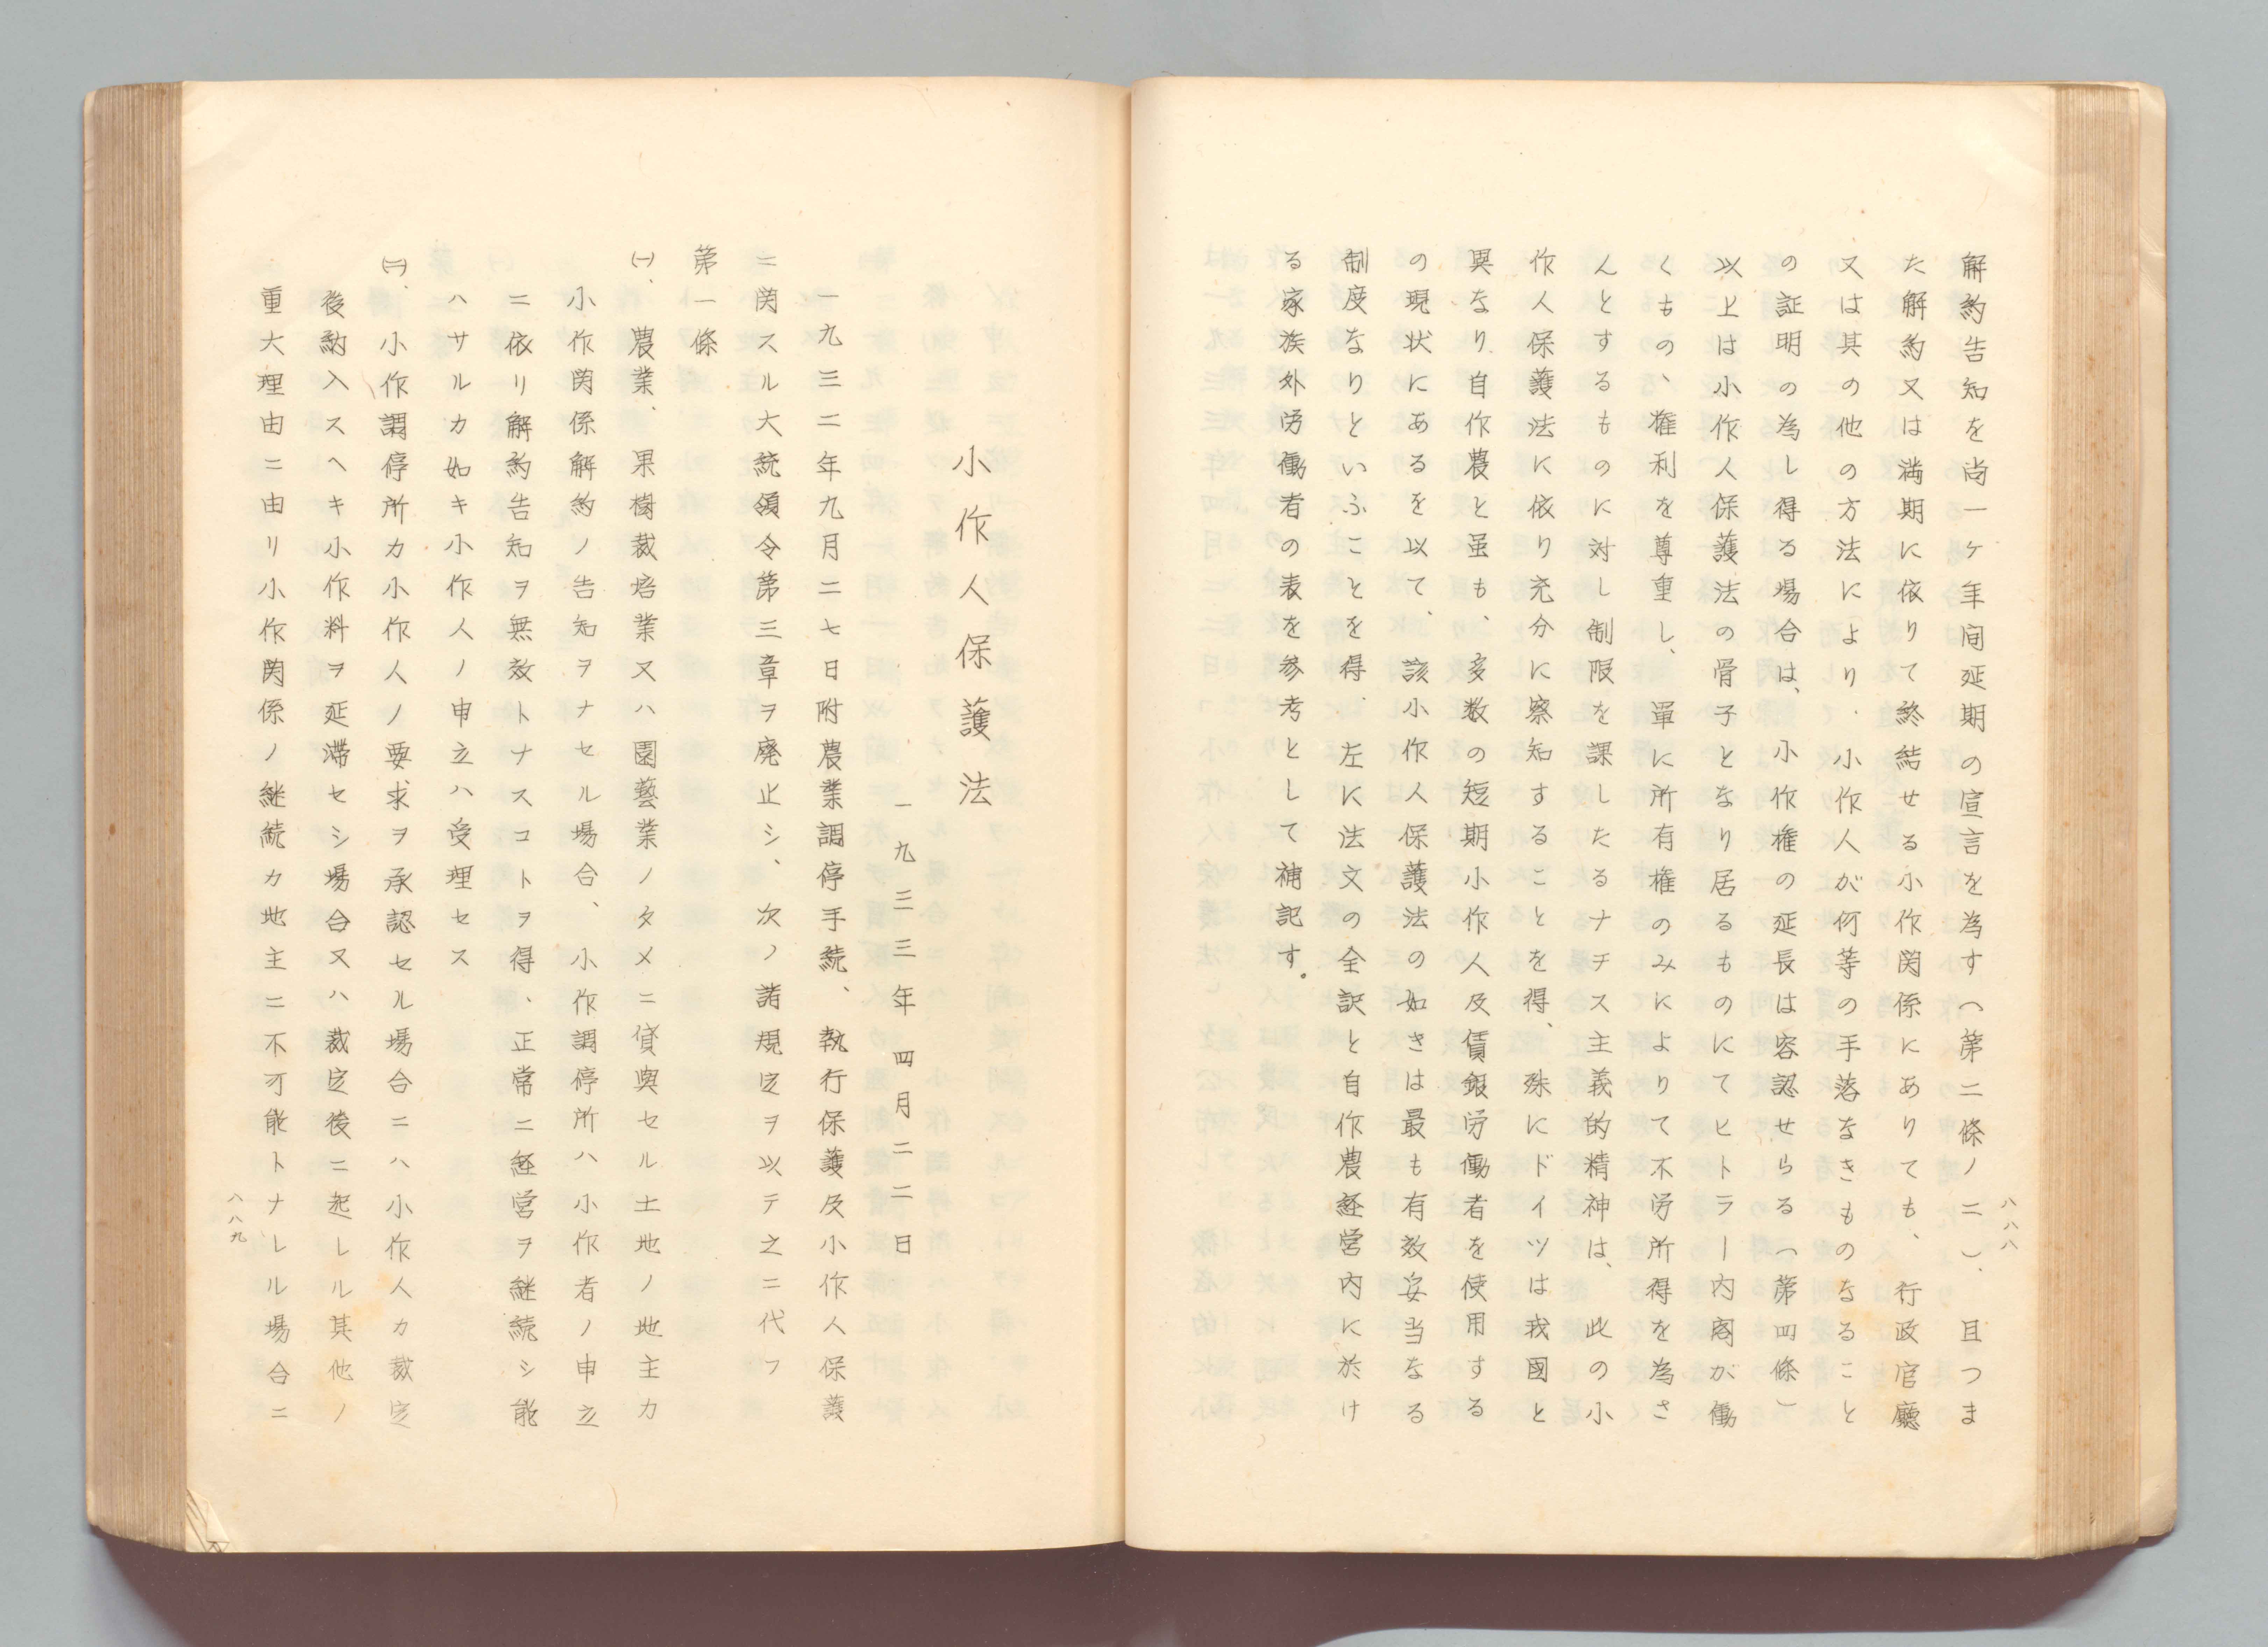 八八八
解約告知を尚一ケ年间延期の宣言を為す（第二條ノ二）、且つま
た解約又は満期に依りて終結せる小作関係にありても、行政官廳
又は其の他の方法により、小作人が何等の手落なきものなること
の証明の為し得る場合は、小作権の延長は容認せらる（第四條）
以上は小作人保護法の骨子となり居るものにてヒトラー内閣が働
くもの、権利を尊重し、単に所有権のみによりて不労所得を為さ
んとするものに対し制限を課したるナチス主義的精神は、此の小
作人保護法に依り充分に察知することを得、殊にドイツは我國と
異なり自作農と虽も、多数の短期小作人及賃銀労働者を使用する
の現状にあるを以て、該小作人保護法の如きは最も有效妥当なる
制度なりといふことを得、左に法文の全訳と自作農経営内に於け
る家族外労働者の表を参考として補記す。
小作人保護法
一九三三年四月二二日
一九三二年九月二七日附農業調停手続、執行保護及小作人保護
ニ関スル大統領令第三章ヲ廃止シ、次ノ諸規定ヲ以テ之ニ代フ
第一條
㈠、農業、果樹裁培業又ハ園藝業ノタメニ貸與セル土地ノ地主カ
小作関係解約ノ告知ヲナセル場合、小作調停所ハ小作者ノ申立
ニ依リ解約告知ヲ無效トナスコトヲ得、正常ニ経営ヲ継続シ能
ハサルカ如キ小作人ノ申立ハ受理セス
㈡、小作調停所カ小作人ノ要求ヲ承認セル場合ニハ小作人カ裁定
後納入スヘキ小作料ヲ延滞セシ場合又ハ裁定後ニ起レル其他ノ
重大理由ニ由リ小作関係ノ継続カ地主ニ不可能トナレル場合ニ
八八九